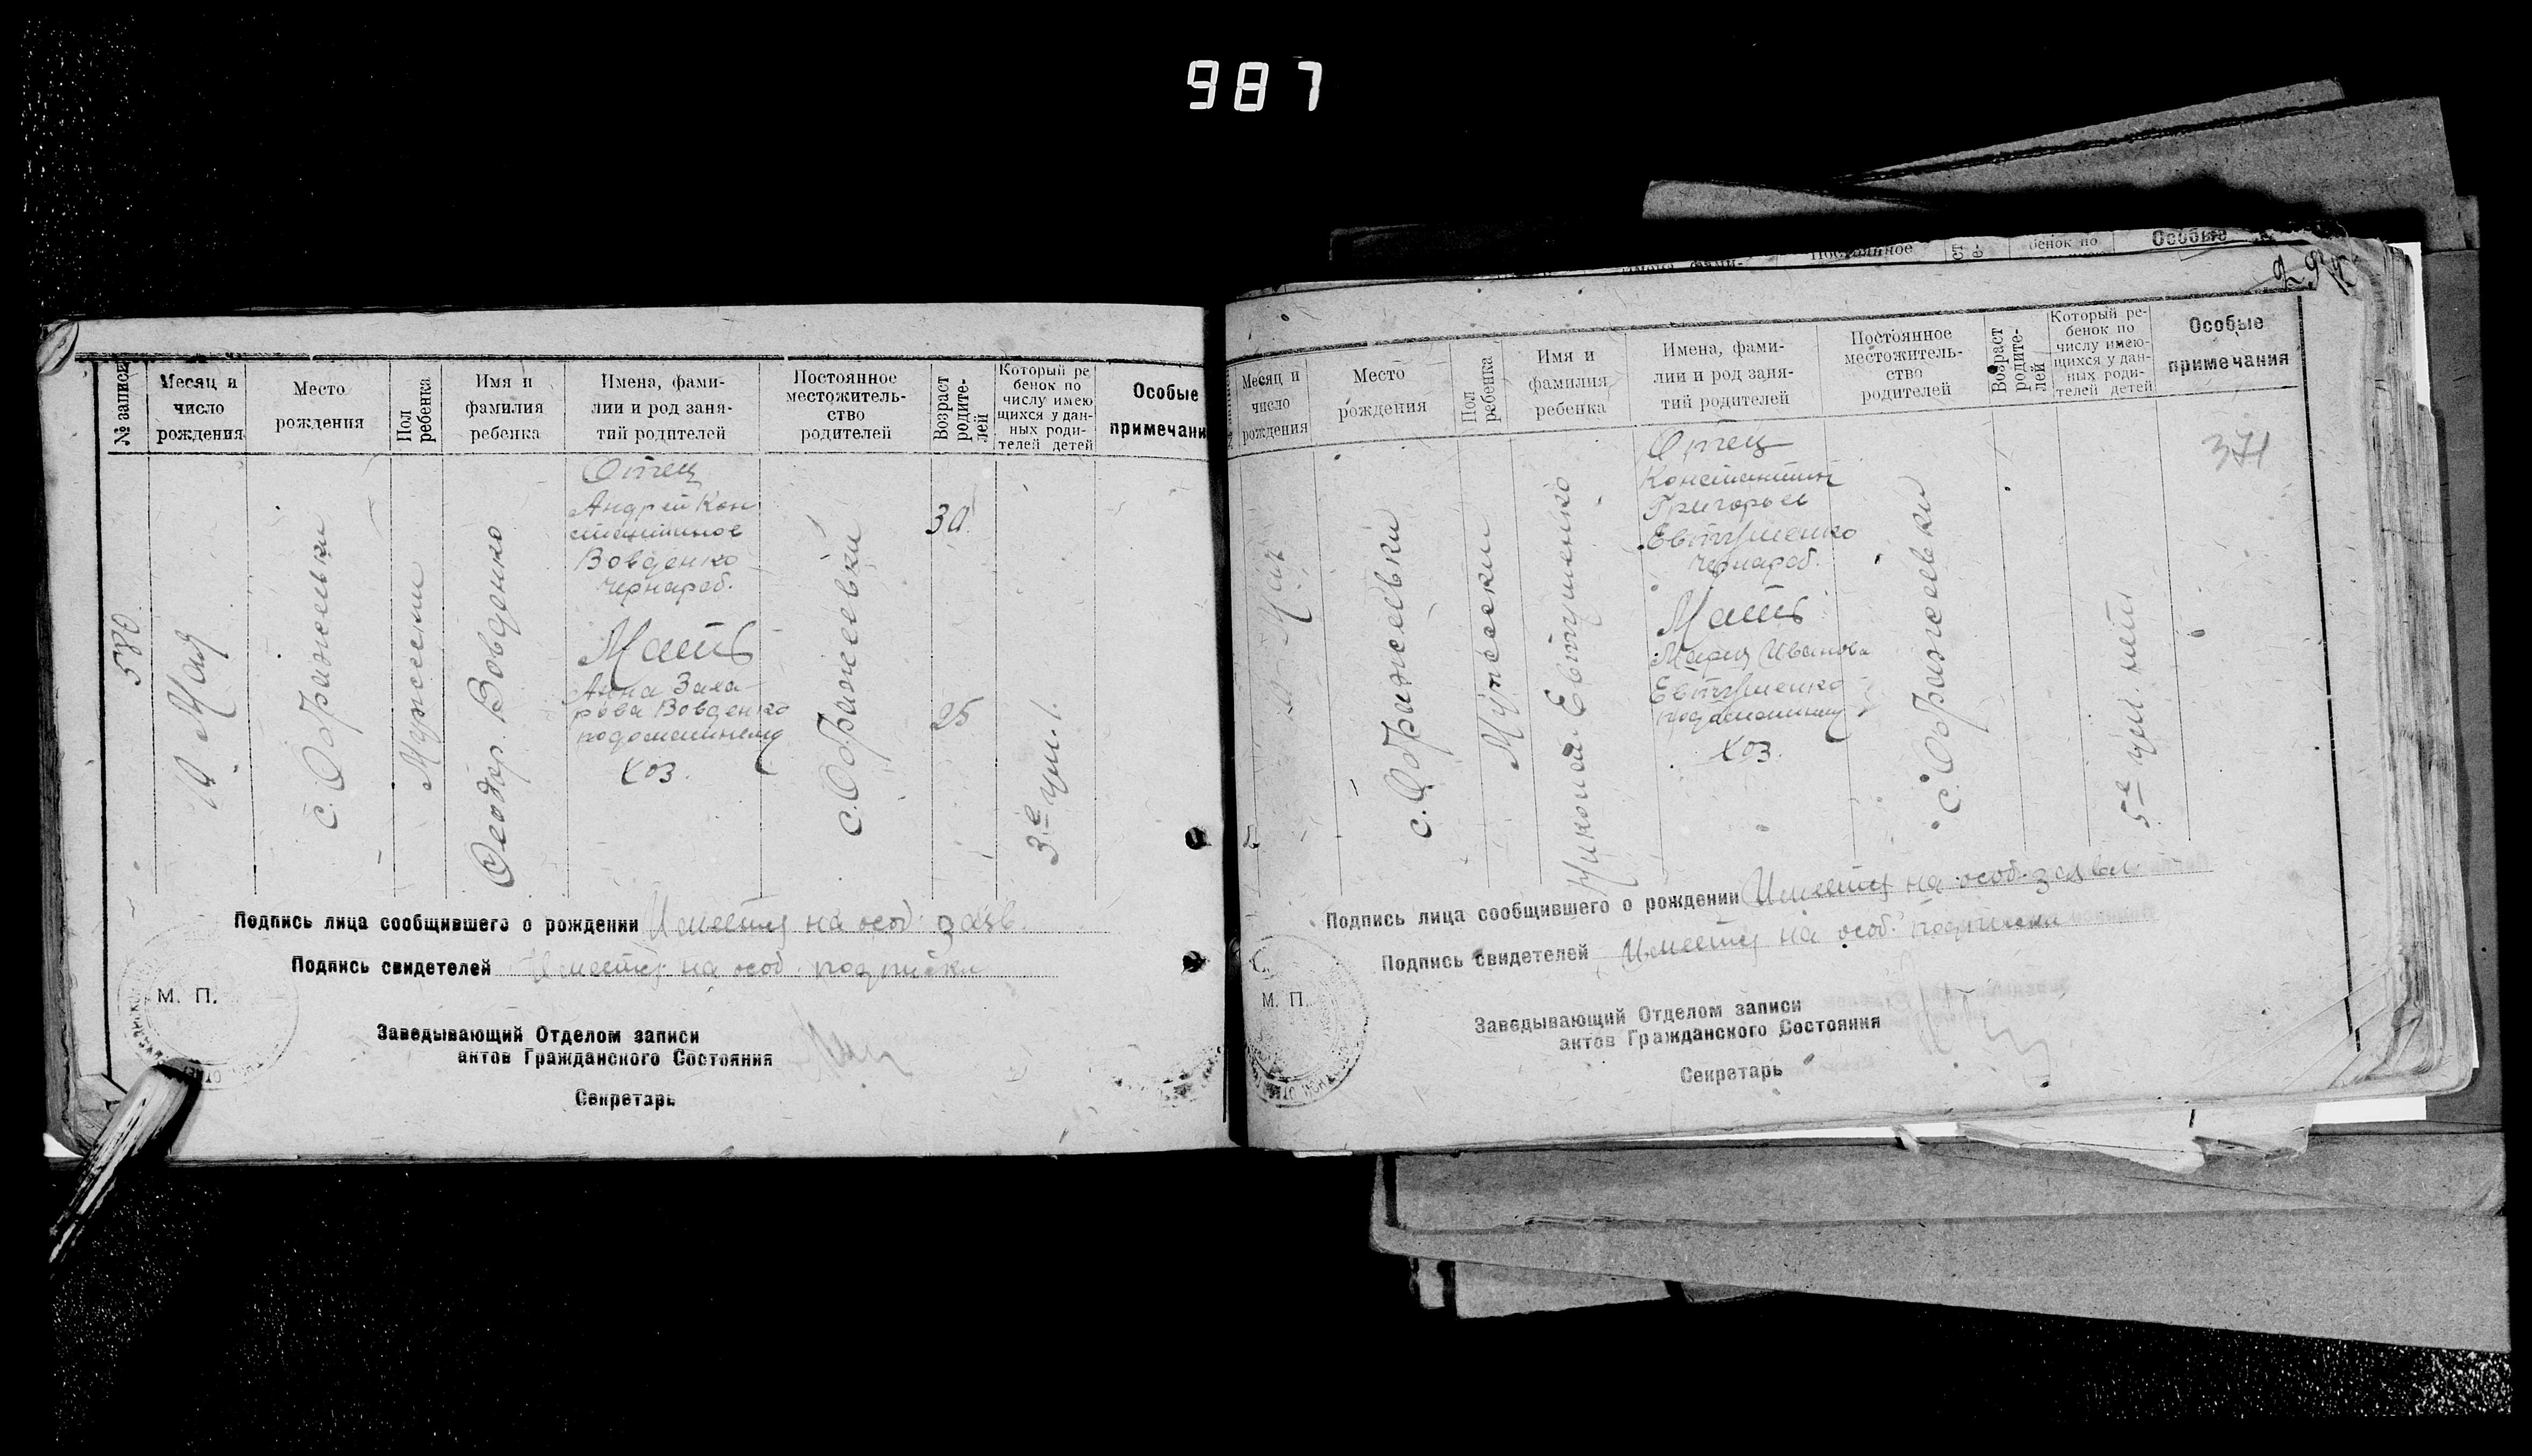 987
Особые
бенок по
Постоянное
№ записи
Месяц и
число
рождения
Место
рождения
Пол
ребенка
Имя и
фамилия
ребенка
Имена, фами-
лии и род заня-
тий родителей
Постоянное
местожитель-
ство
родителей
Возраст
родите-
лей
Который ре
бенок по
числу имею
щихся у дан-
ных роди-
телей детей
Особые
примечани
580.
19 Мая
с. Ображеевки
Мужески
Феодор. Вовденко
Отец
Андрей Кон
стантинов
Вовденко
чернараб.
Мать
Анна Заха-
рова Вовденко
подомашнему
хоз.
с. Ображеевки
30
25
3е чил.
Подпись лица сообщившего о рождении Имеетц на особ. заяв.
Подпись свидетелей Имеетц на особ. подписки
М. П.
Заведывающий Отделом записи
актов Гражданского Состояния
Секретарь
Месяц и
число
рождения
Место
рождения
Пол
ребенка
Имя и
фамилия
ребенка
Имена, фами-
лии и род заня-
тий родителей
Постоянное
местожитель-
ство
родителей
Возраст
родите-
лей
Который ре-
бенок по
числу имею-
щихся у дан-
ных роди-
телей детей
Особые
примечания
371
с. Ображеевки
Мужески
Николай Евтушенко
Отец
Константин
Григорьев
Евтушенко
чернараб.
Мать
Мария Иванова
Евтушенко
подомашнему
хоз.
с. Ображеевки
5е чил.
Подпись лица сообщившего о рождении Имеетц на особ. заявл.
Подпись свидетелей Имеетц на особ. подписки
М. П.
Заведывающий Отделом записи
актов Гражданского Состояния
Секретарь